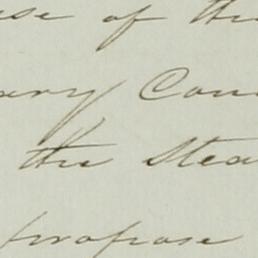 use of the
ary Com
the Stea
propose